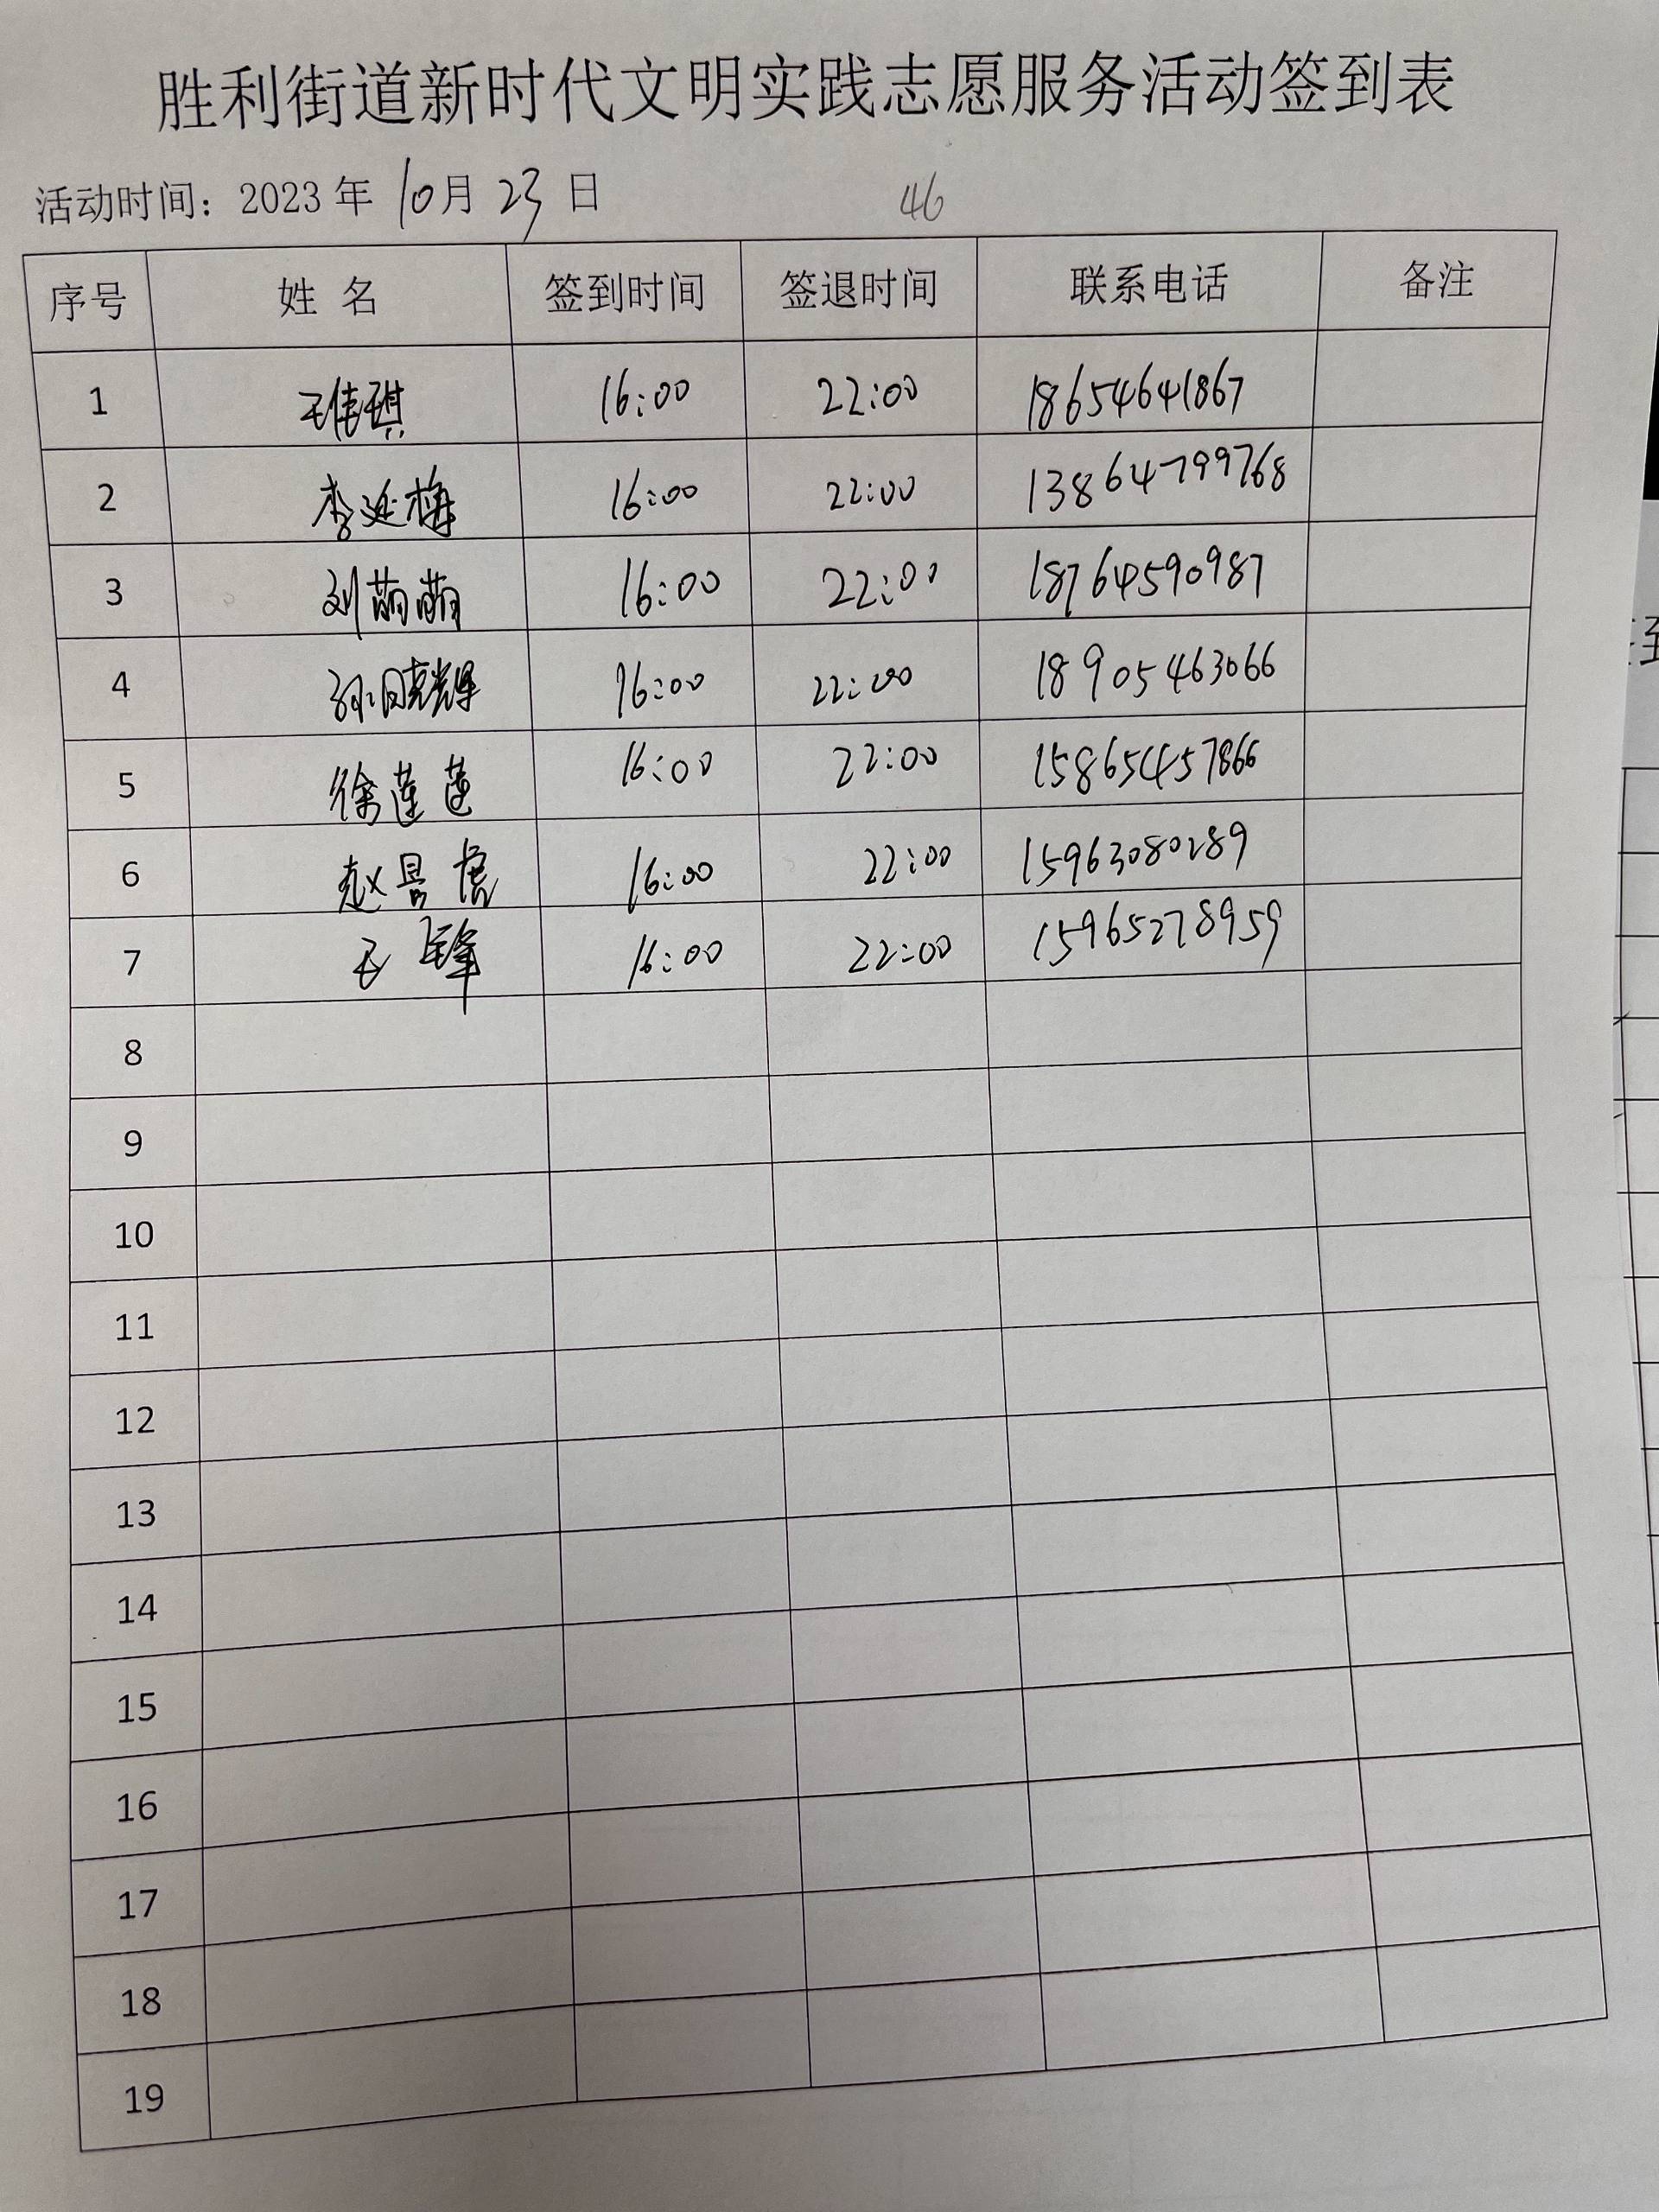 胜利街道新时代文明实践志愿服务活动签到表
活动时间：2023年 10月 23 日 46
序号 姓 名 签到时间 签退时间 联系电话 备注
1 王佳琪 16:00 22:00 18654641867
2 李延梅 16:00 22:00 13864799768
3 刘萌萌 16:00 22:00 18764590987
4 孙晓辉 16:00 22:00 18905463066
5 徐莲莲 16:00 22:00 15865457866
6 赵景虎 16:00 22:00 15963080289
7 王锋 16:00 22:00 15965278959
8
9
10
11
12
13
14
15
16
17
18
19